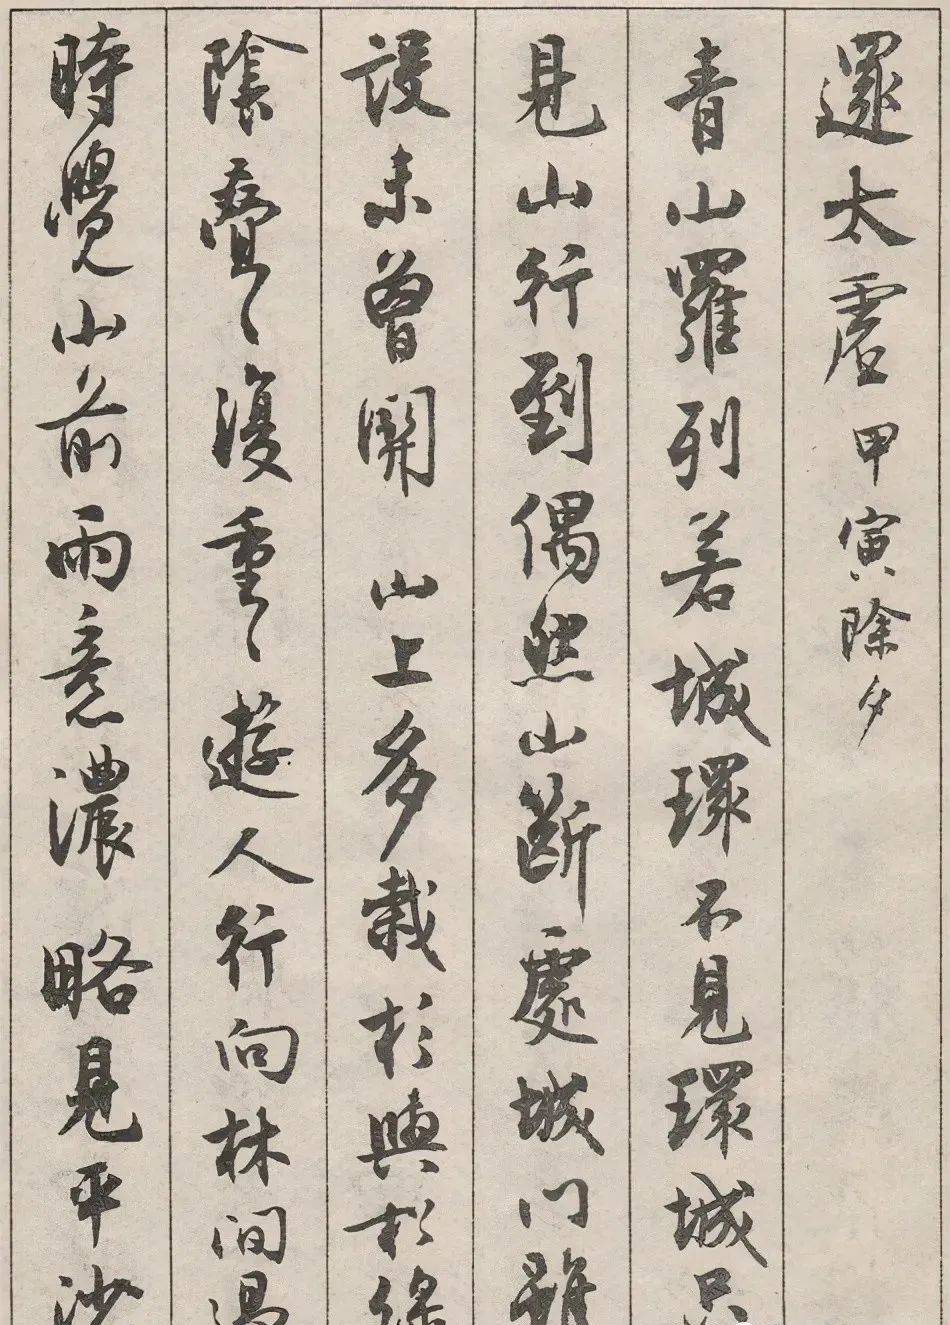 還太虛 甲寅除夕
青山羅列若城環不見環城只
見山行到偶然山斷處城門雖
設未曾開 山上多栽杉與松綠
陰疊〻復重〻遊人行向林間過
時覺山前雨意濃 略見平沙